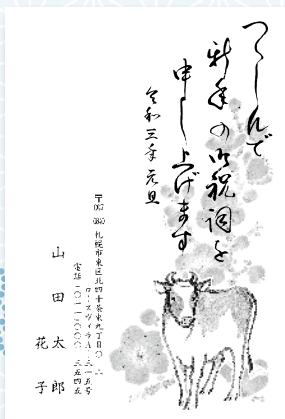 つつしんで
新年の御祝詞を
申し上げます
令和三年元旦
〒007
0840 札幌市東区北四十条東九丁目〇ー二
ローズヴィラA-三一五号
電話 〇一一-〇〇〇〇-三五四五
山田太郎
花子